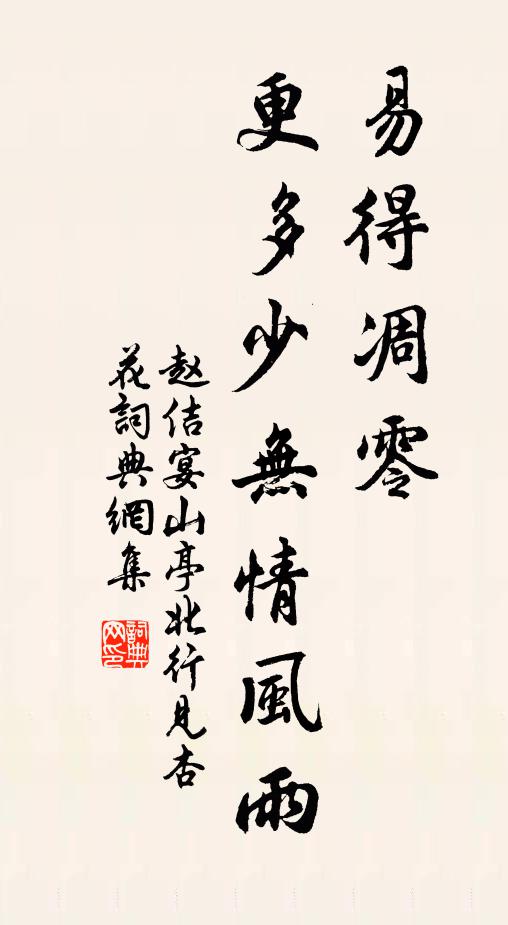 易得凋零
更多少無情風雨
赵佶宴山亭北行見杏
花詞典網集
詞典
网印